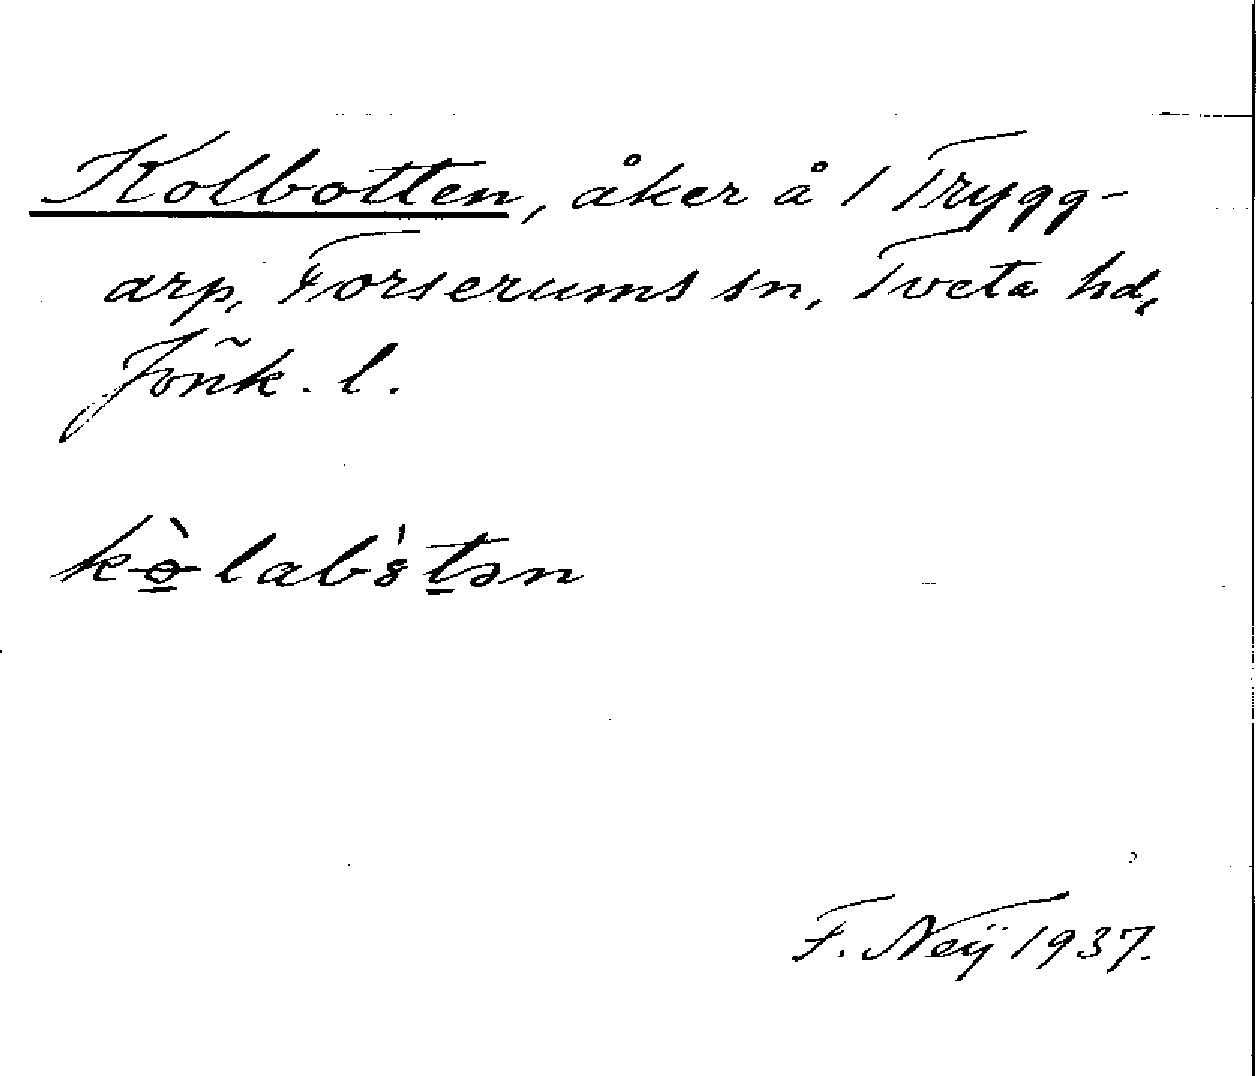 Kolbotten, åker å 1 Trygg-
arp, Forserums sn, Tveta hd,
Jönk. l.
kò̱labʹ8ṯən
F. Neÿ 1937.